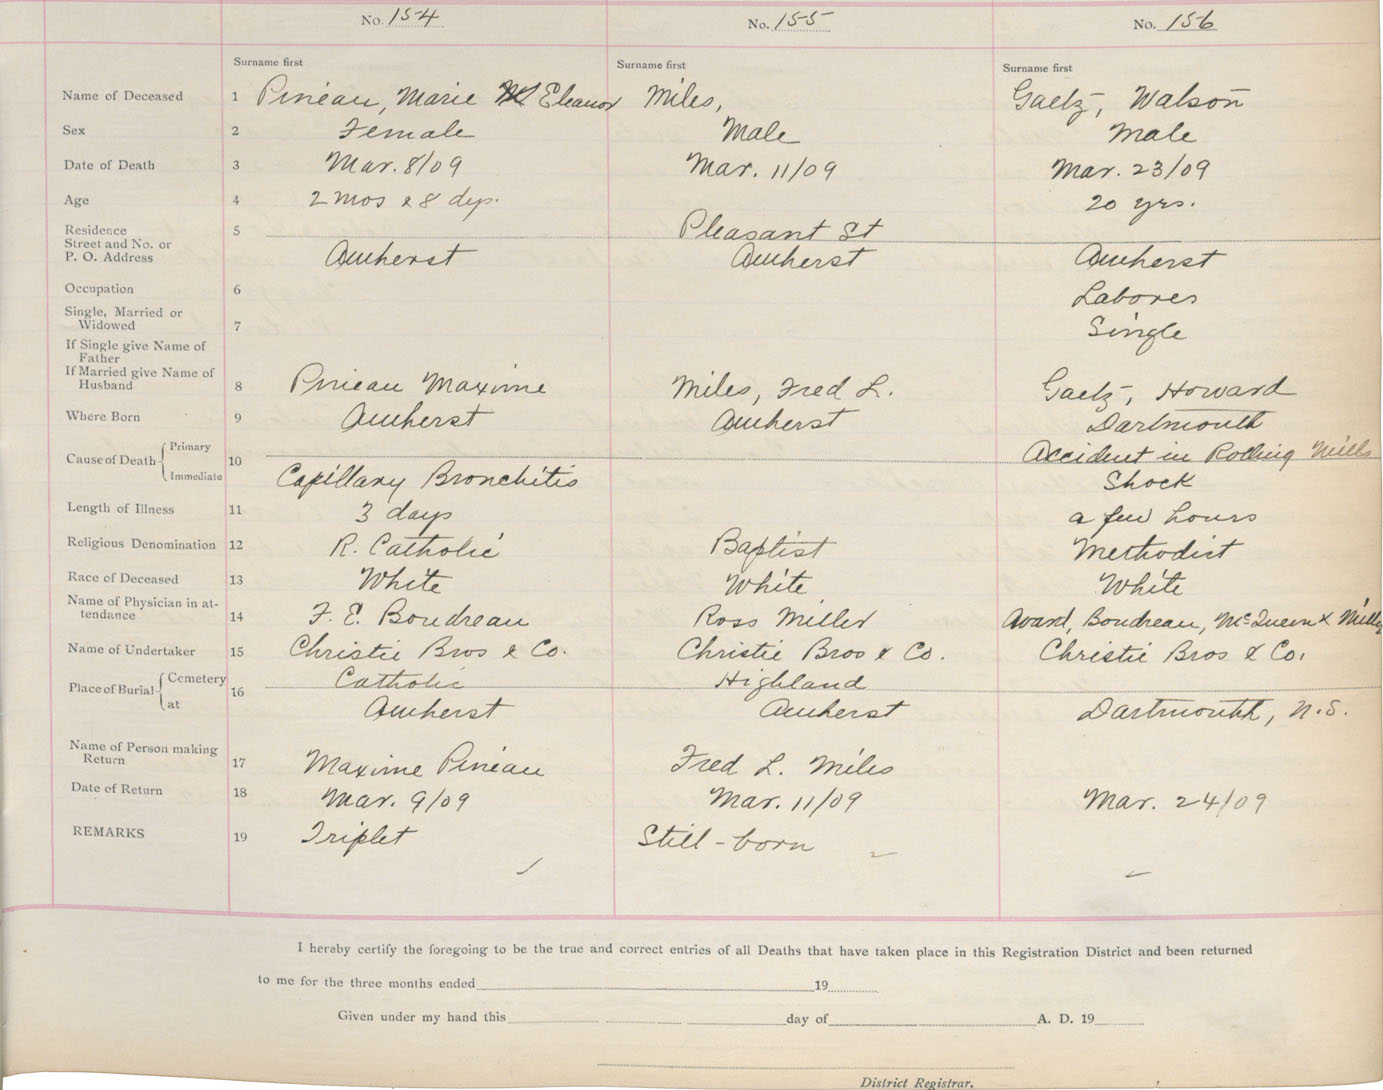 No. 154 No. 155 No. 156
Surname first Surname first Surname first
Name of Deceased 1 Pineau, Marie Eleanor Miles, Gaetz, Watson
Sex 2 Female Male Male
Date of Death 3 Mar. 8/09 Mar. 11/09 Mar. 23/09
Age 4 2 mos & 8 dys. 20 yrs.
Residence 5 Pleasant St
Street and No. or
P. O. Address Amherst Amherst Amherst
Occupation 6 Laborer
Single, Married or
Widowed 7 Single
If Single give Name of
Father
If Married give Name of
Husband 8 Pineau Maxime Miles, Fred L. Gaetz, Howard
Where Born 9 Amherst Amherst Dartmouth
Cause of Death 10 Primary Accident in Rolling Mills
Immediate Capillary Bronchitis Shock
Length of Illness 11 3 days a few hours
Religious Denomination 12 R. Catholic Baptist Methodist
Race of Deceased 13 White White White
Name of Physician in at-
tendance 14 F. E. Boudreau Ross Miller Avard, Boudreau, McQueen & Miller
Name of Undertaker 15 Christie Bros & Co. Christie Bros & Co. Christie Bros & Co.
Place of Burial 16 Cemetery Catholic Highland
at Amherst Amherst Dartmouth, N.S.
Name of Person making
Return 17 Maxime Pineau Fred L. Miles
Date of Return 18 Mar. 9/09 Mar. 11/09 Mar. 24/09
REMARKS 19 Triplet Still-born
I hereby certify the foregoing to be the true and correct entries of all Deaths that have taken place in this Registration District and been returned
to me for the three months ended 19
Given under my hand this day of A. D. 19
District Registrar.